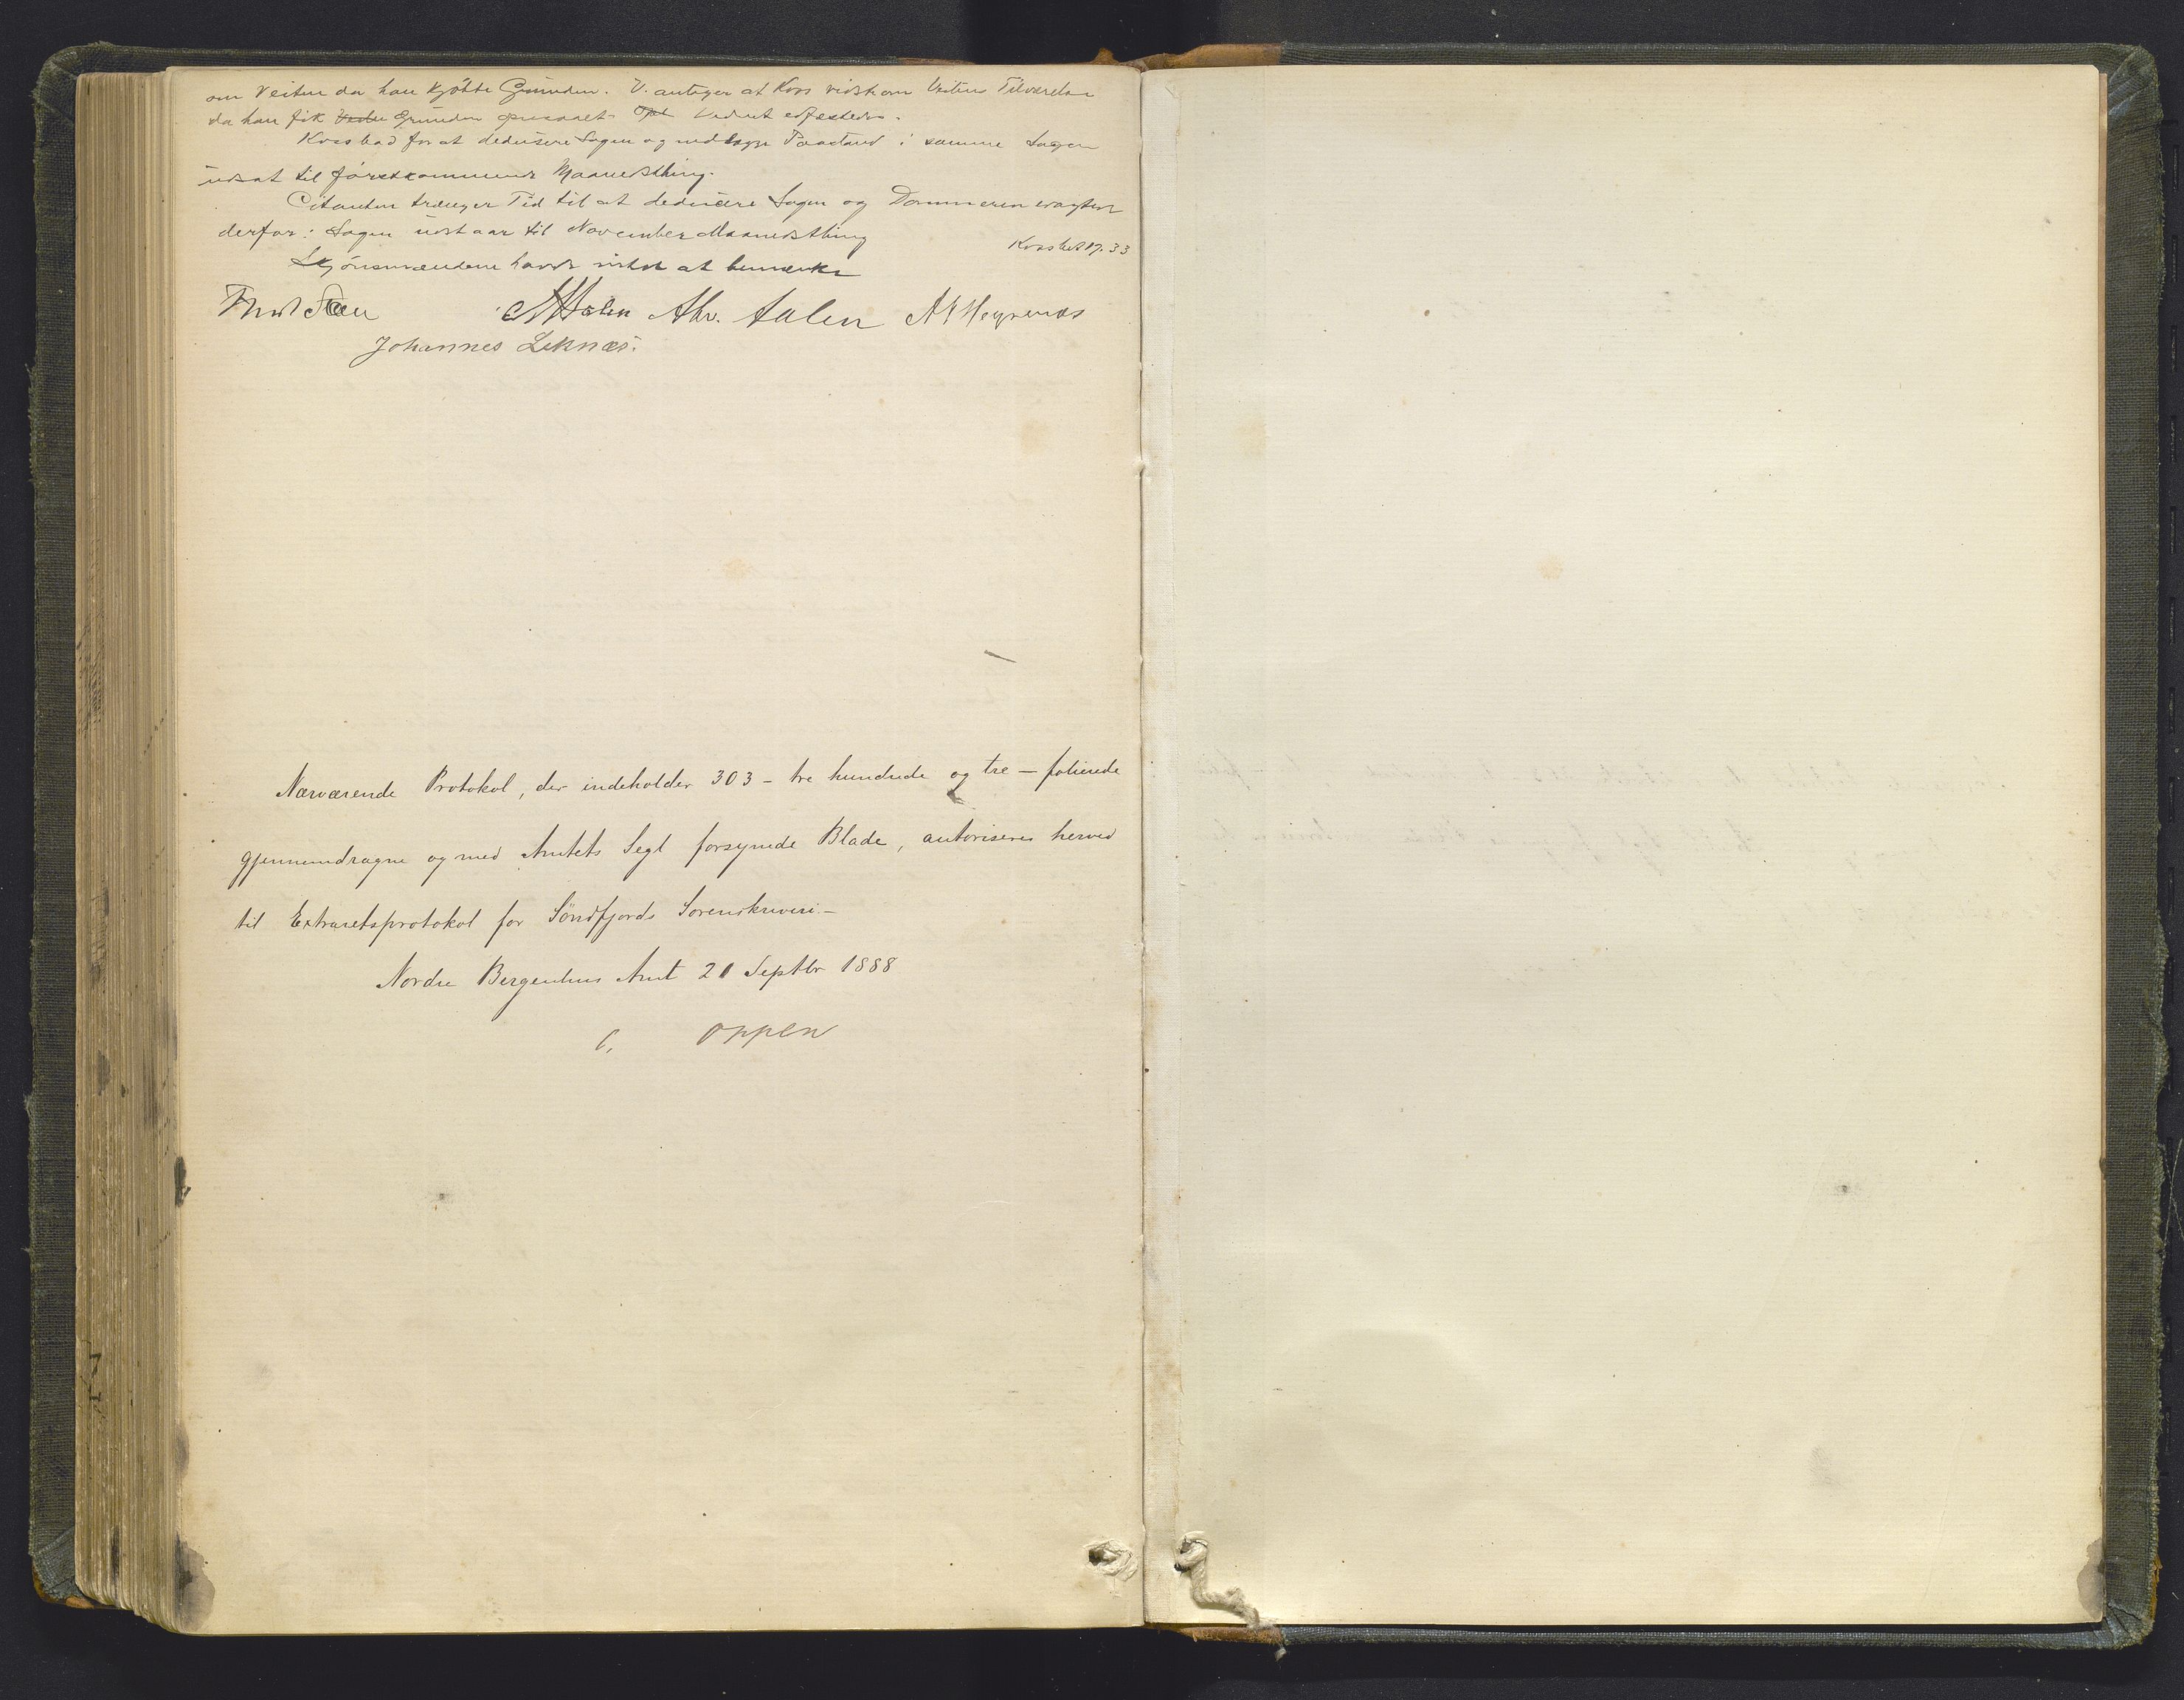 om Veiten da han kjøbte Grunden. V. antager at Kors vidste om Veitens Tilværelse
da han fik Grunden Opl Vidnet edfæstedes.
Kors bad for at deducere Sagen og nedlægge Paastand i samme Sagen
udsat til førstkommende Maanedsthing.
Citanten trænger Tid til at deducere Sagen og Dommeren eragtede
derfor: Sagen udstaar til November Maanedsthing
Skjønsmændene havde intet at bemærke
Aalen Ahr. Aalen
Johannes Leknæs.
Nærværende Protokol, der indeholder 303 - tre hundrede og tre - folierede
gjennemdragne og med Amtets Segl forsynede Blade, autoriseres herved
til Extraretsprotokol for Söndfjords Sorenskriveri. -
Nordre Bergenhus Amt 21 Septbr 1888
Oppen